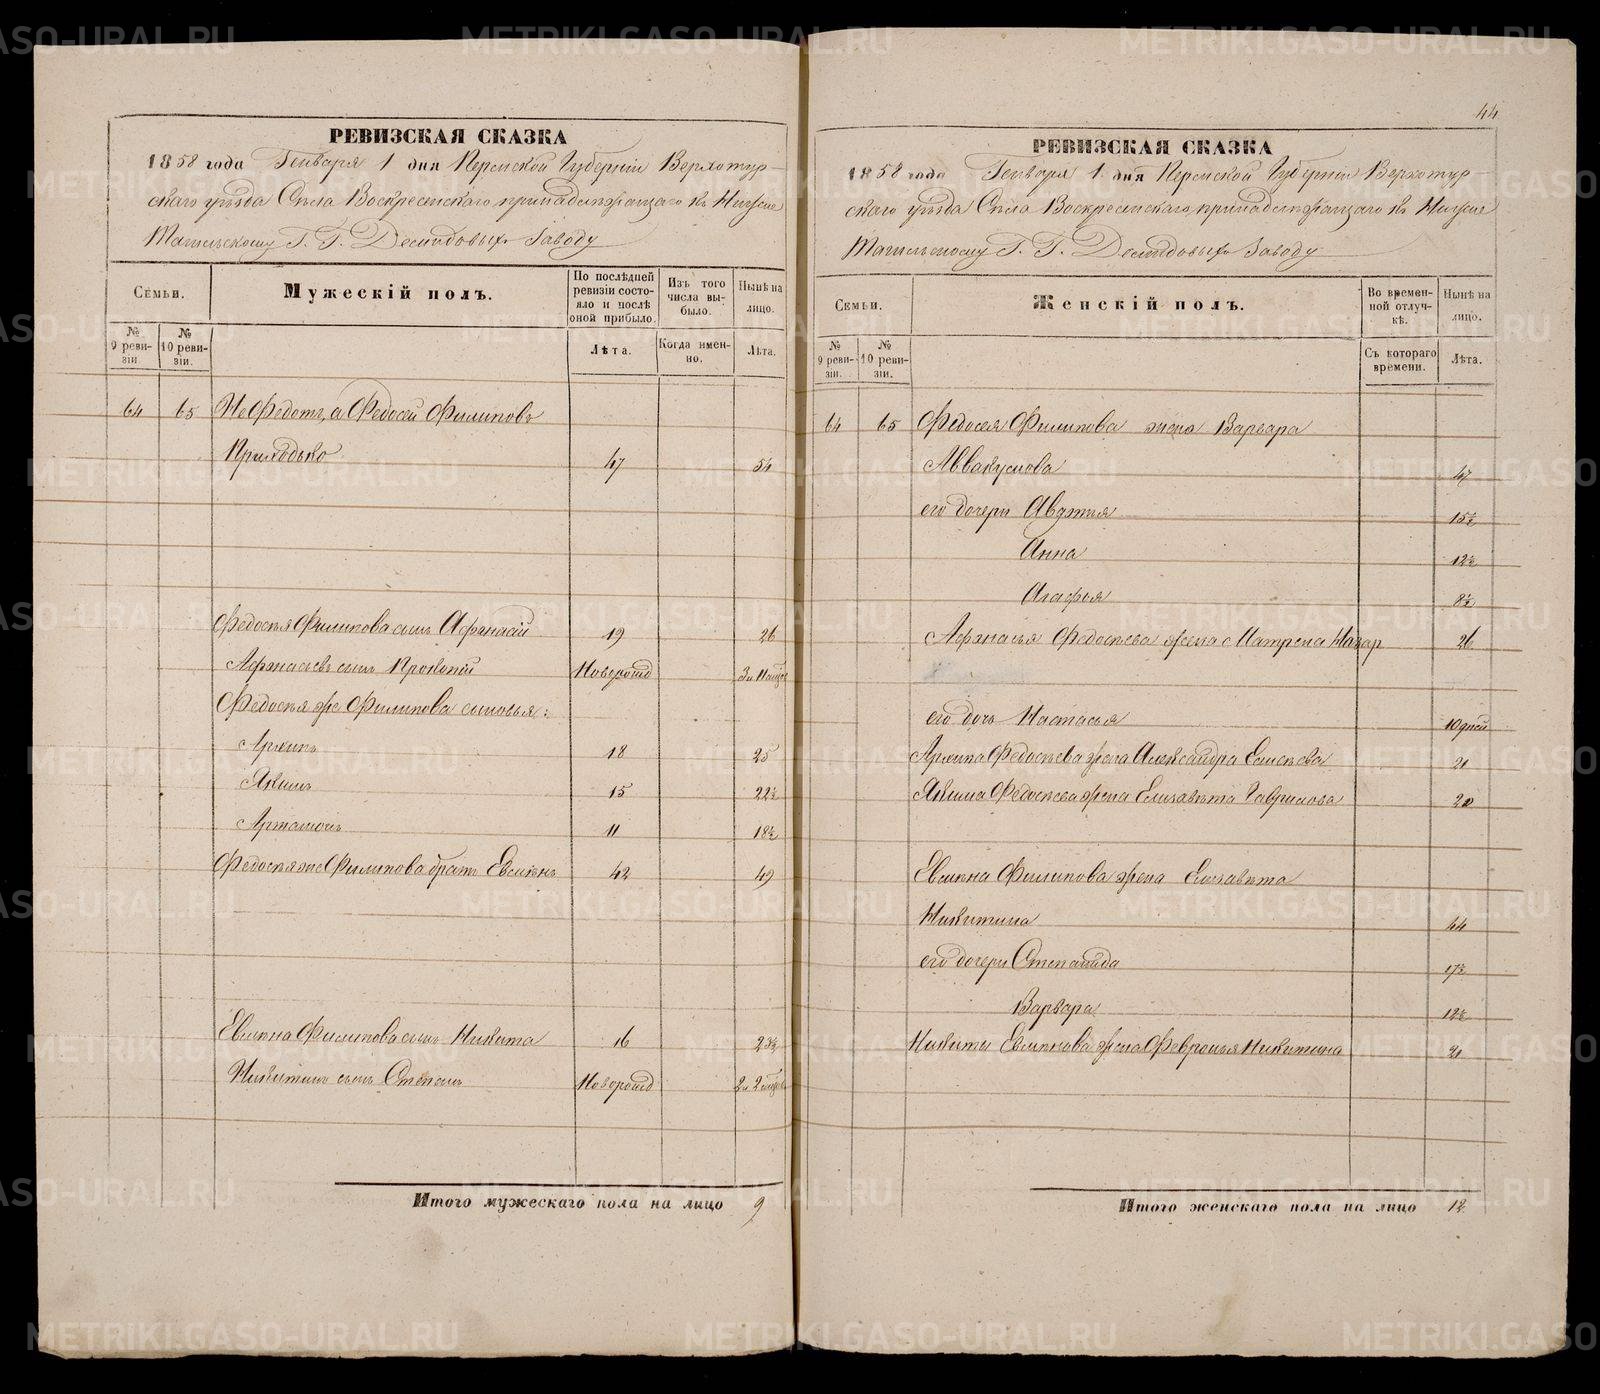 РЕВИЗСКАЯ СКАЗКА
1858 года Генваря 1 дня Пермской Губернiи Верхотур-
скаго уѣзда Села Воскресенскаго принадлежащаго къ Нижне
Тагильскому Г. Г. Демидовыхъ Заводу
Семьи.
Мужескiй полъ.
По послѣдней ревизiи состояло и послѣ оной прибыло.
Изъ того числа выбыло.
Нынѣ на лицо.
№ 9 ревизiи
№ 10 ревизiи.
Лѣта.
Когда именно.
Лѣта.
64 65 Не Федотъ, а Федосей Филиповъ
Приходько 47 54
Федосѣя Филипова сынъ Афанасiй 19 26
Афанасьевъ сынъ Прокопiй Новорожд 3 и 11 мѣсяц
Федосѣя же Филипова сыновья:
Архипъ 18 25
Якимъ 15 22½
Артамонъ 11 18½
Федосѣя же Филипова братъ Евсигнъ 42 49
Евсигна Филипова сынъ Никита 16 23½
Никитинъ сынъ Степанъ Новорожд 2 и 2 мѣсяц
Итого мужескаго пола на лицо 9
44
РЕВИЗСКАЯ СКАЗКА
1858 года Генваря 1 дня Пермской Губернiи Верхотур-
скаго уѣзда Села Воскресенскаго принадлежащаго къ Нижне
Тагильскому Г. Г. Демидовыхъ Заводу
Семьи.
Женскiй полъ.
Во временной отлучкѣ.
Нынѣ на лицо.
№ 9 ревизiи.
№ 10 ревизiи.
Съ котораго времени.
Лѣта.
64 65 Федосея Филипова жена Варвара
Аввакумова 47
его дочери Авдотья 15½
Анна 12½
Агафья 8½
Афанасья Федосѣева жена Матрена Назар 26
его дочь Настасья 10 дней
Архипа Федосѣева жена Александра Елисѣева 21
Якима Федосѣева жена Елизавѣта Гаврилова 20
Евсигна Филипова жена Елизавѣта
Никитина 44
его дочери Степанида 17½
Варвара 12½
Никиты Евсигнова жена Февронья Никитина 21
Итого женскаго пола на лицо 12
METRIKI.GASO-URAL.RU